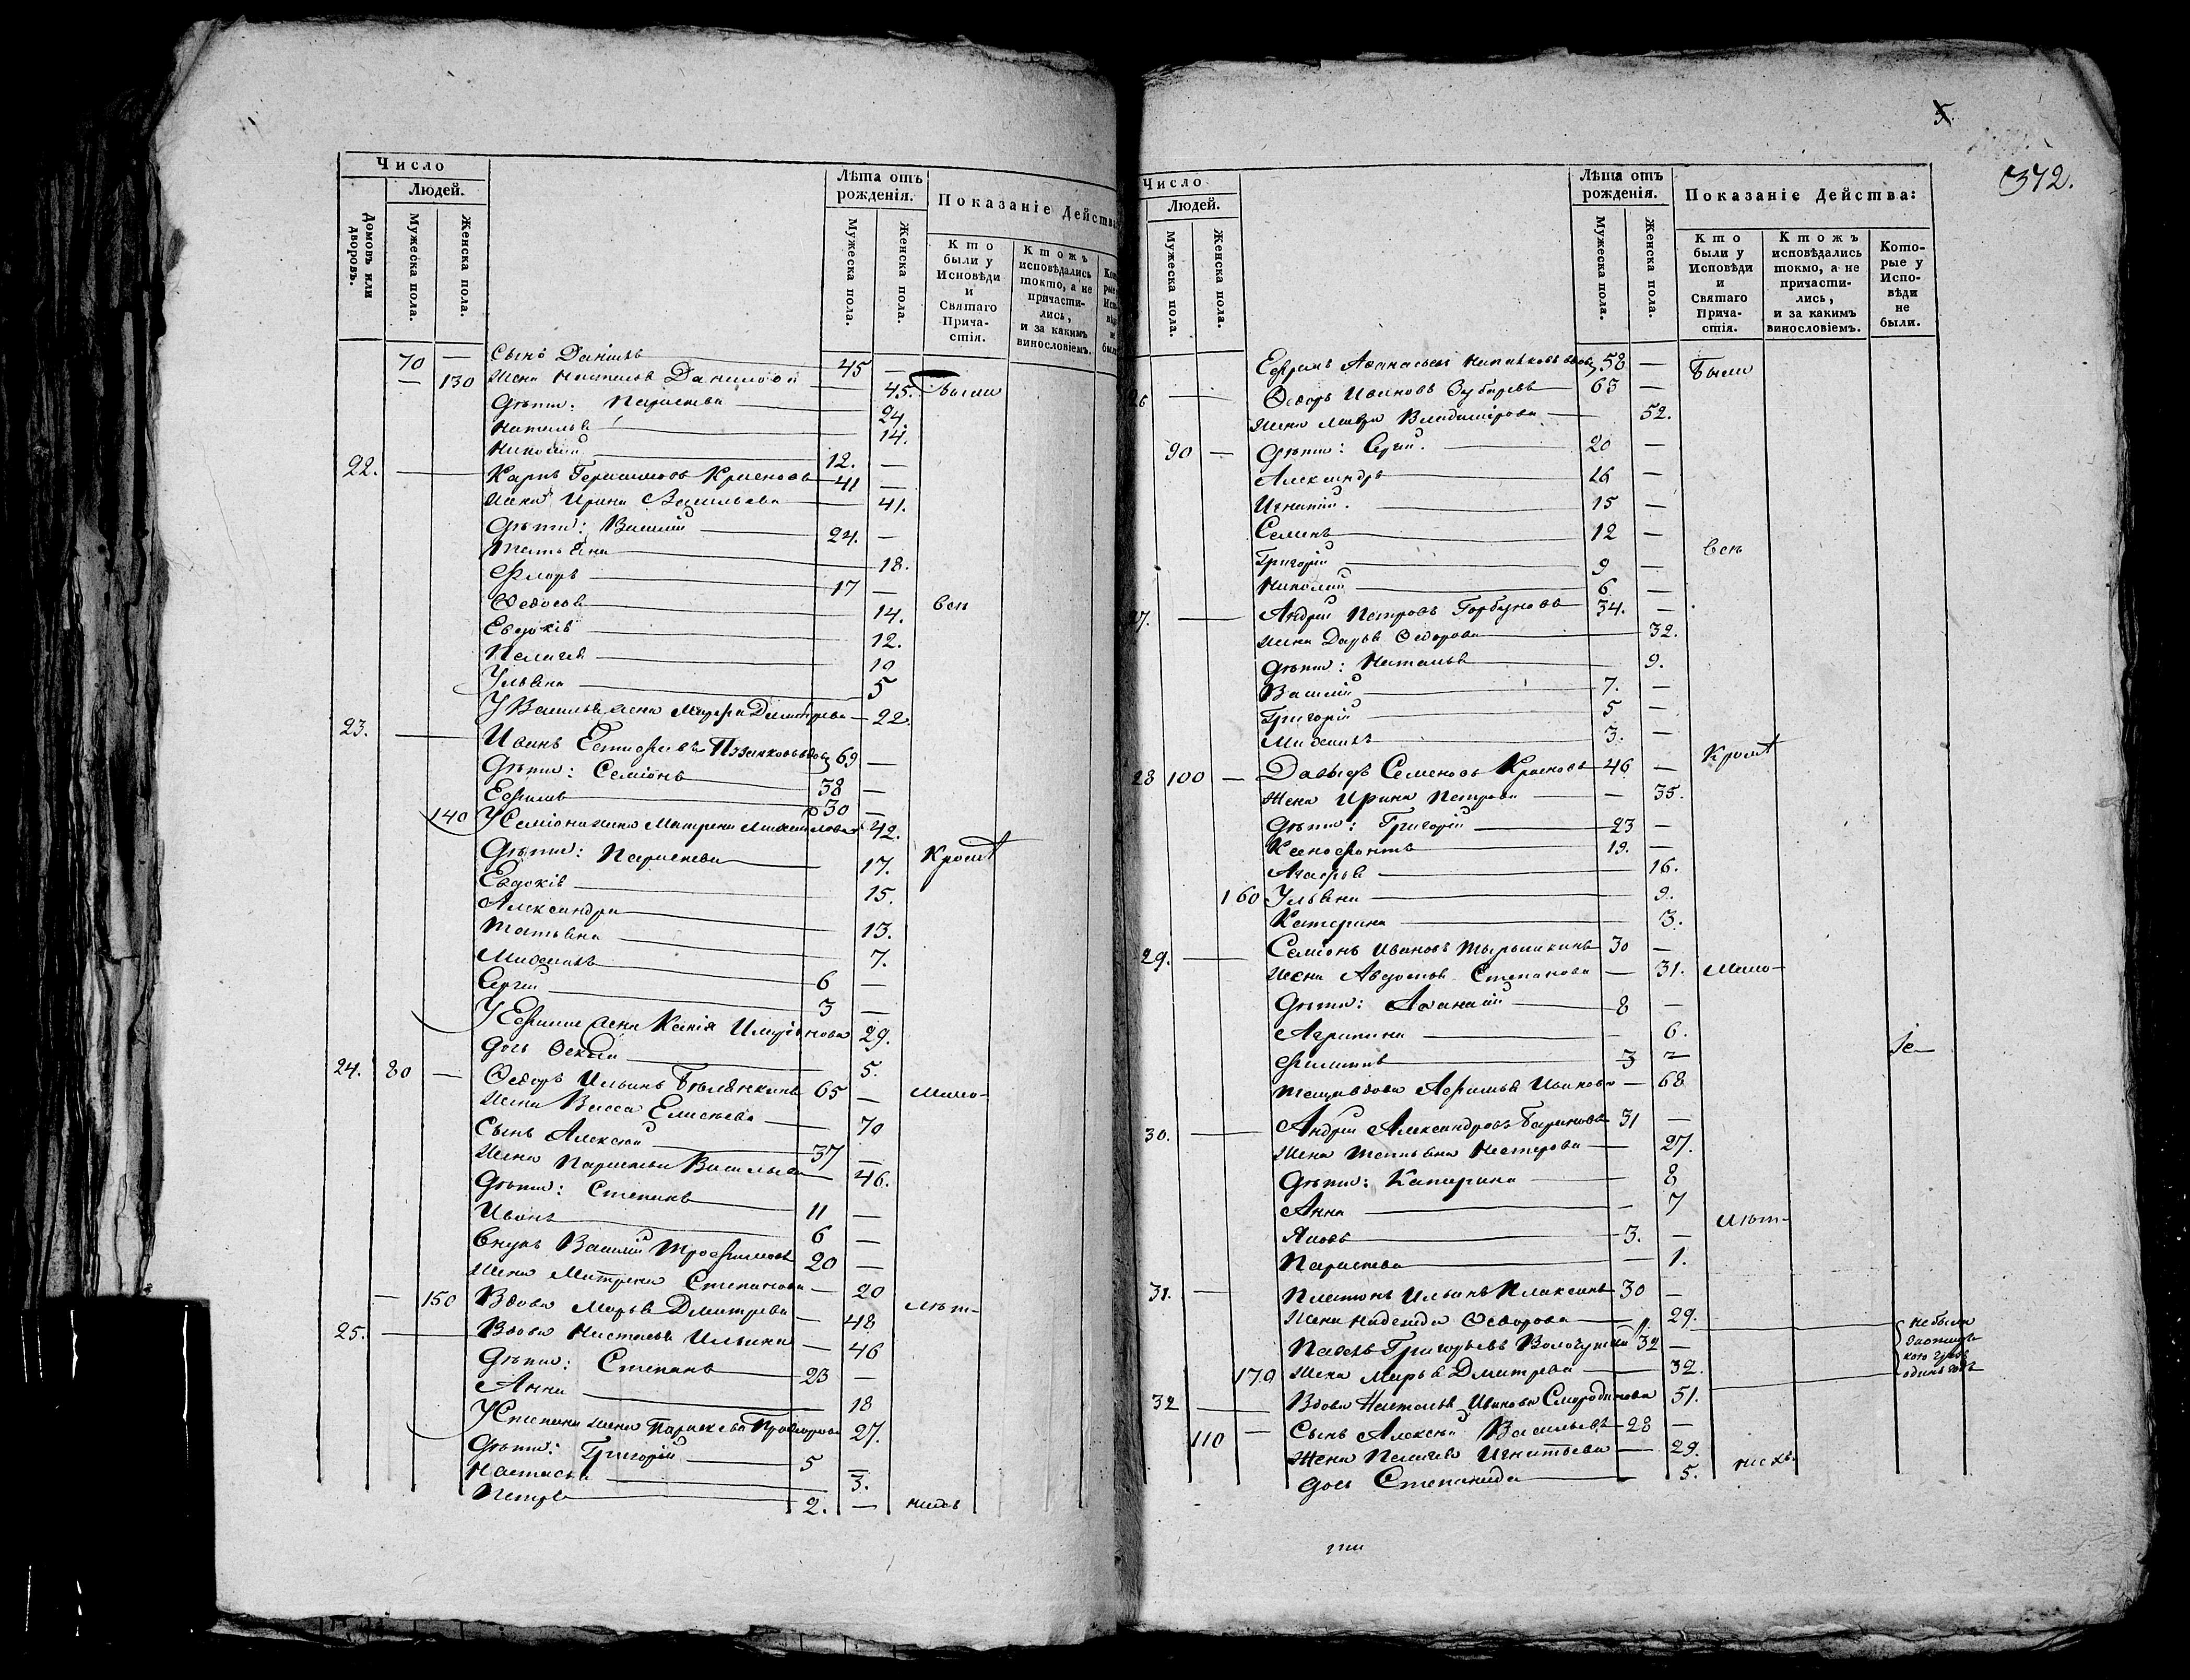 Число
Людей.
Домовъ или дворовъ.
Мужеска пола.
Женска пола.
Лѣта отъ рожденія.
Мужеска пола.
Женска пола.
Показаніе Действа
Кто были у Исповѣди и Святаго Прича-стія.
Ктожъ исповѣдались токмо, а не причасти-лись, и за какимъ винословіемъ.
70 — Сынъ Даніилъ 45 —
— 130 Жена Наталья Данилова 45. Были
Дѣти: Параскева 24.
Наталья 14.
Николай 12. —
22. Карпъ Герасимовъ Красновъ 41 —
Жена Ирина Васильева 41.
Дѣти: Василій 24. —
Татьяна 18.
Флоръ 17 —
Ѳедосья 14. всѣ
Евдокія 12.
Пелагея 10
Ульяна 5
У Василья жена Марфа Дмитрева 22.
23. Иванъ вдовъ 69 —
Дѣти: Семіонъ 38 —
Ефимъ 30 —
140 У Семіона жена Матрена Михайлова 42.
Дѣти: Параскева 17. Кромѣ
Евдокія 15.
Александра
Татьяна 13.
Михаилъ 7.
Сергій 6 —
3 —
У Ефима жена Ксенія 29.
Дочь Ѳекла 5.
24. 80 — Ѳедоръ Ильинъ 65 — мало-
Жена Васса Елисеева 70
Сынъ Алексій 37 —
Жена Параскева Васильева 46.
Дѣти: Степанъ 11 —
Иванъ 6 —
Внукъ Василій Трофимовъ 20 —
Жена Матрена Степанова 20
— 150 Вдова Марья Дмитрева 48 лѣт-
25. Вдова Настасья Ильина 46
Дѣти: Степанъ 23 —
Анна 18
У Степана жена Параскева 27.
Дѣти: Григорій 5 —
Настасья 3.
Петръ 2. — нихъ
5.
372.
Число
Людей.
Мужеска пола.
Женска пола.
Лѣта отъ рожденія.
Мужеска пола.
Женска пола.
Показаніе Действа:
Кто были у Исповѣди и Святаго Прича-стія.
Ктожъ исповѣдались токмо, а не причасти-лись, и за какимъ винословіемъ.
Кото-рые у Испо-вѣди не были.
Ефремъ Аѳанасьевъ вдовъ 58 — Были
26 Ѳедоръ Ивановъ Зубаревъ 63 —
Жена Мавра Владимірова 52.
90 — Дѣти: Сергій. 20 —
Александръ 16 —
Игнатій. 15 —
Семенъ 12 — всѣ
Григорій 9 —
Николай 6 —
27. Андрей Петровъ Горбуновъ 34. —
Жена Дарья Ѳедорова 32.
Дѣти: Наталья 9.
Василій 7. —
Григорій 5 —
Михаилъ 3. —
28 100 — Давыдъ Семеновъ Красновъ 46 — Кромѣ
Жена Ирина Петрова — 35.
Дѣти: Григорій 23 —
Ксенофонтъ 19. —
Агафья 16.
160 Ульяна 9.
Катерина 3.
29. Семіонъ Ивановъ 30 —
Жена Авдотья Степанова — 31. мало-
Дѣти: Аѳанасій 8 —
Агрипина — 6.
Филиппъ 3 —
Теща вдова Афимья Иванова — 68
30. Андрей Александровъ Бариновъ 31 —
Жена Татьяна Нестерова — 27.
Дѣти: Катерина 8
Анна — 7
Яковъ 3. — лѣт-
Параскева — 1.
31. Платонъ Ильинъ Плаксинъ 30 —
Жена Надежда Ѳедорова 29.
Павелъ Григорьевъ 32 —
170 Жена Марья Дмитрева 32.
не были
одинъ годъ
32 Вдова Наталья Иванова Смородинова 51.
110 — Сынъ Алексѣй Васильевъ 28 —
Жена Пелагея Игнатьева 29.
Дочь Степанида 5. нихъ.